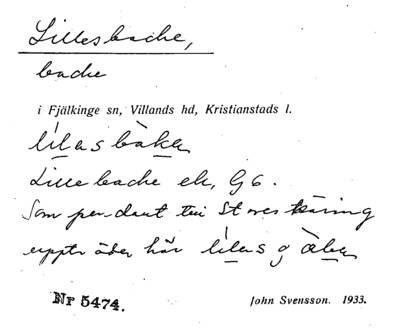 Lillesbacke,
backe
i Fjälkinge sn, Villands hd, Kristianstads l.
lilas bakan
Lille backe ek, G 6.
Som pendant till Stores
uppträder här lilas
Nr 5474.
John Svensson. 1933.